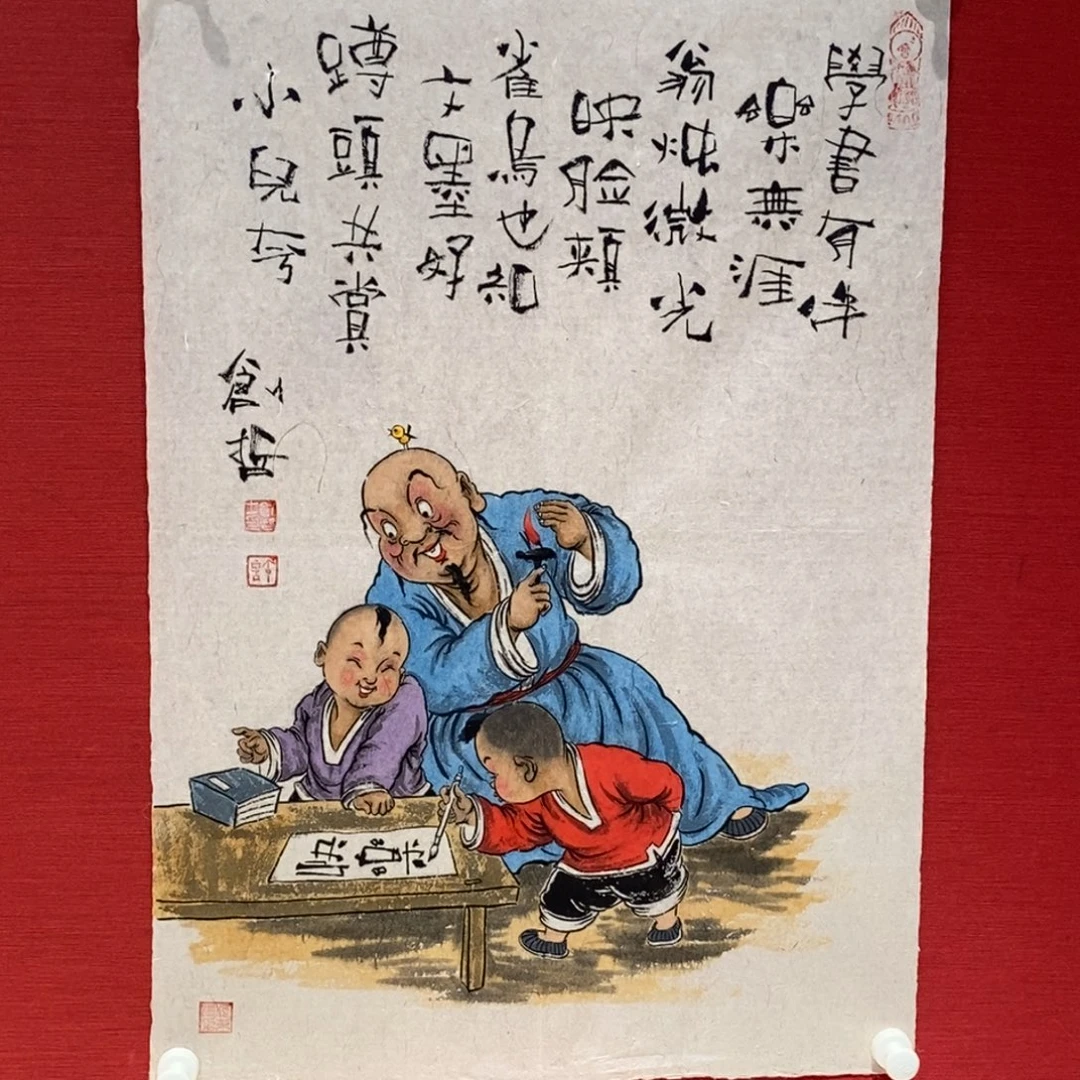 學書有伴
樂無涯
翁烛微光
映脸頰
雀鳥也知
文墨好
蹲頭共賞
小兒夸
創